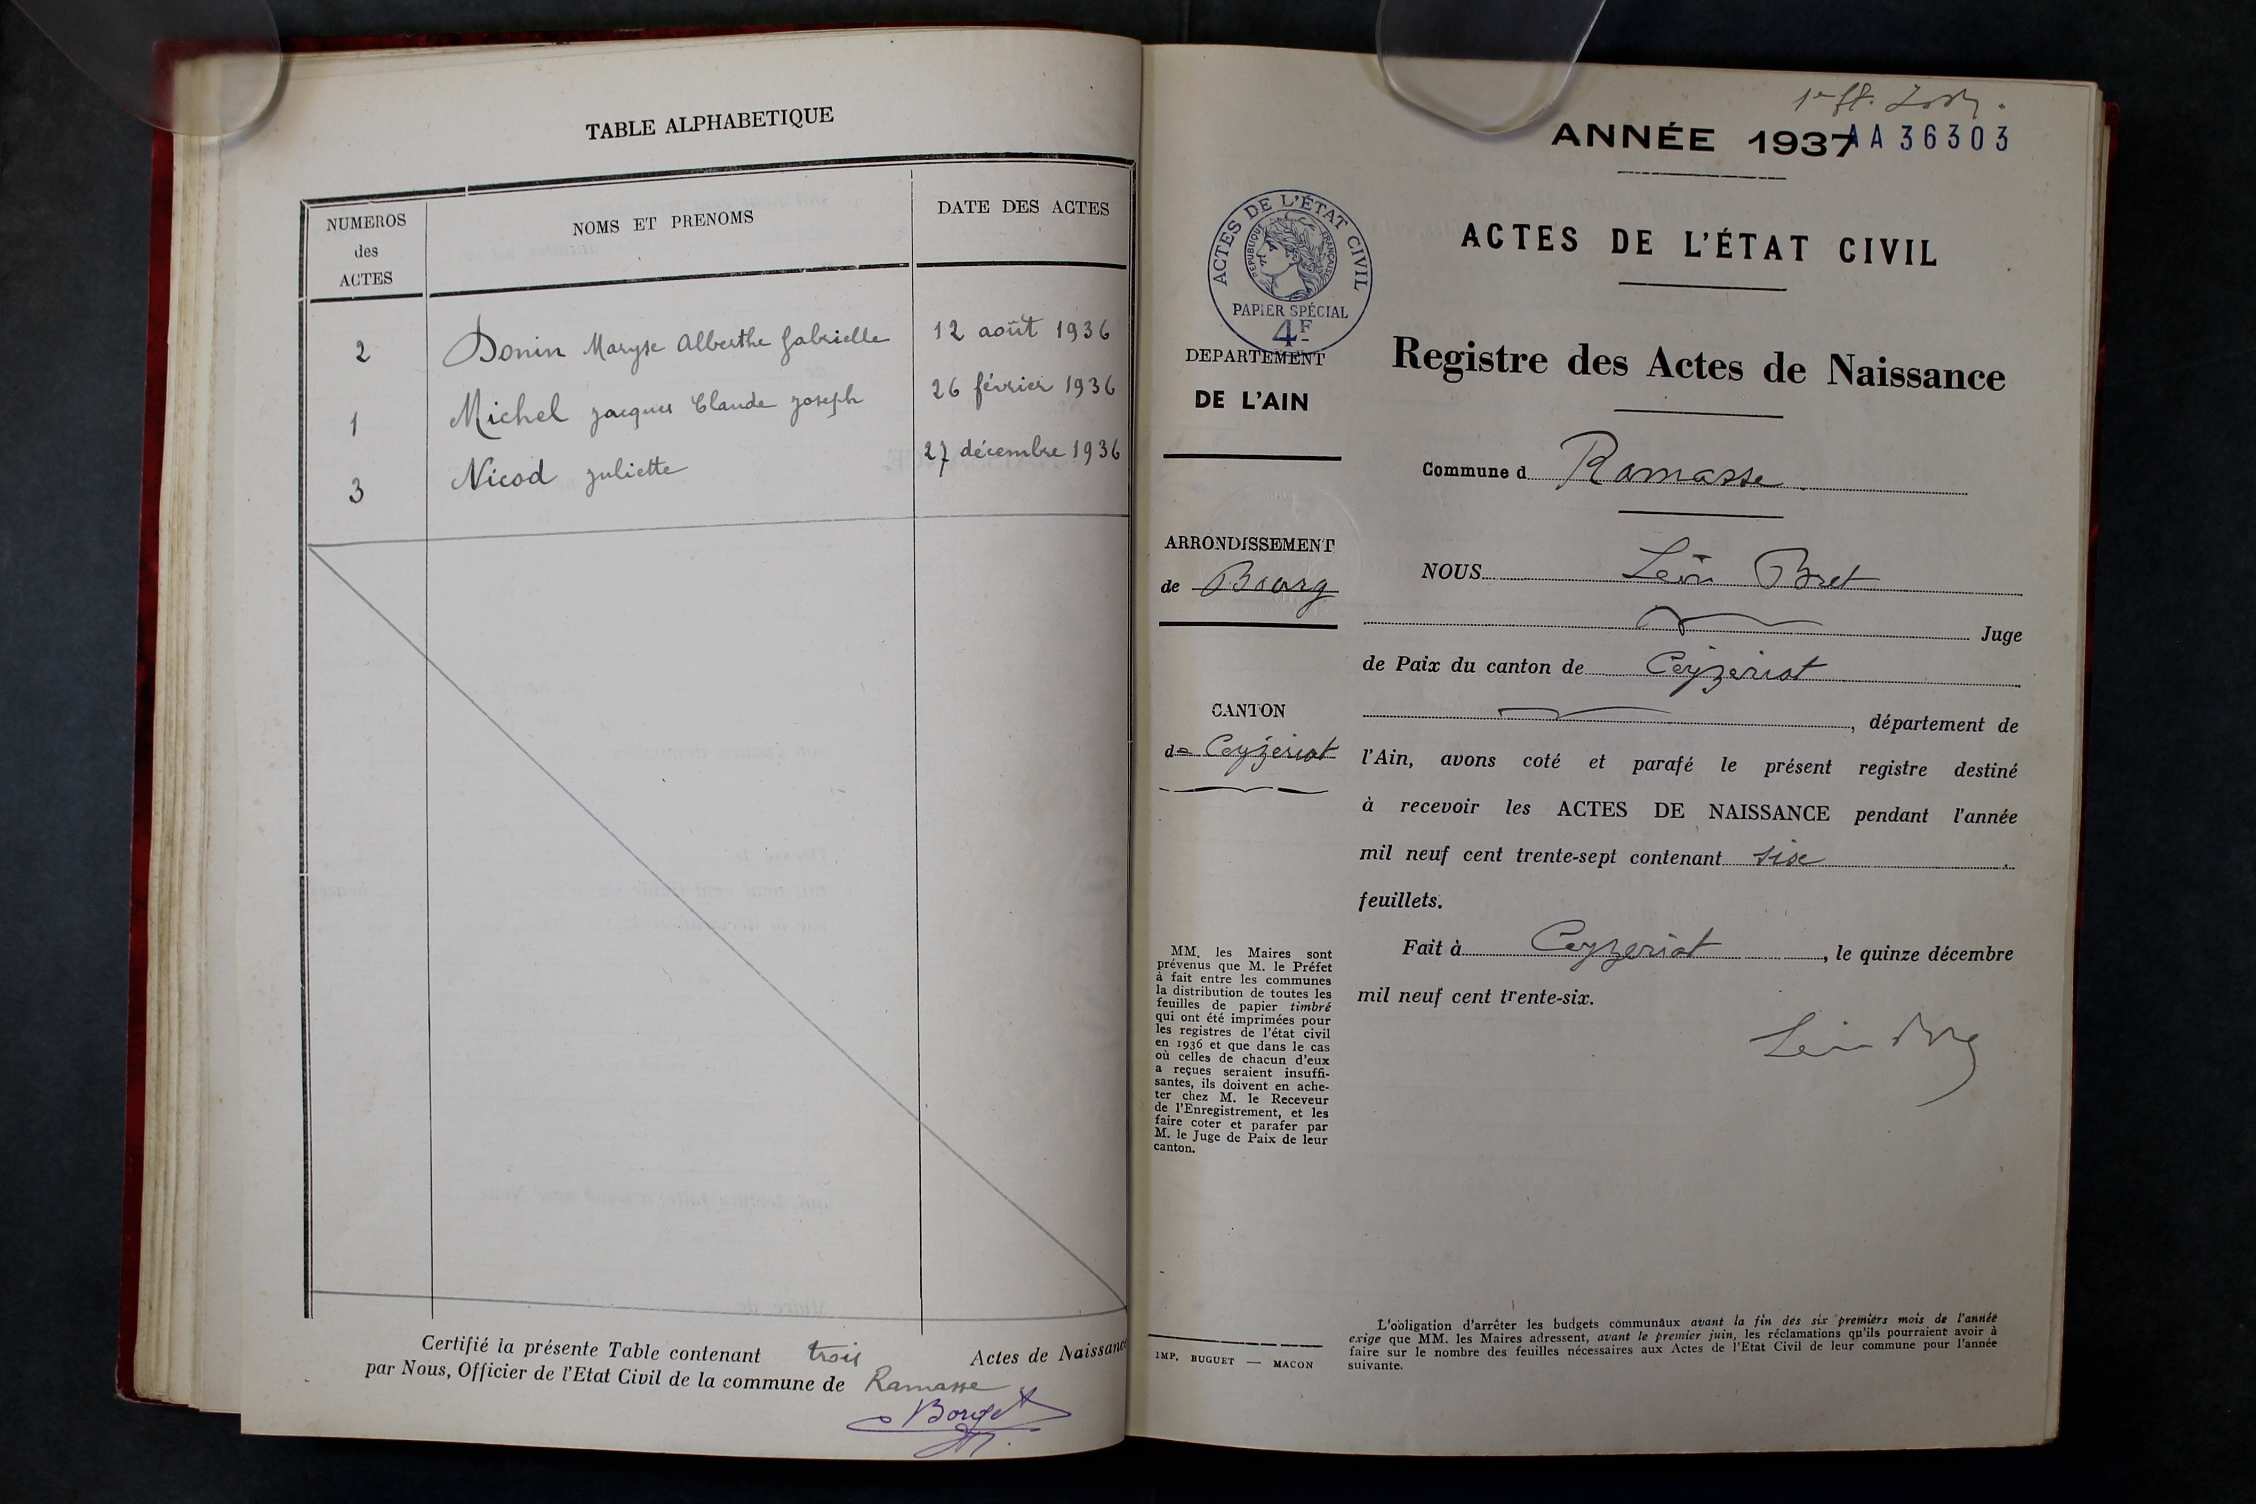 TABLE ALPHABETIQUE
NUMEROS
des
ACTES
NOMS ET PRENOMS
DATE DES ACTES
2 Donin Maryse Alberthe Gabrielle 12 août 1936
1 Michel Jacques Claude Joseph 26 février 1936
3 Nicod Juliette 27 décembre 1936
Certifié la présente Table contenant trois Actes de Naissance
par Nous, Officier de l'Etat Civil de la commune de Ramasse
ANNÉE 1937
AA 36303
ACTES DE L'ÉTAT CIVIL
RÉPUBLIQUE FRANÇAISE
PAPIER SPÉCIAL
4F
DEPARTEMENT
DE L'AIN
ARRONDISSEMENT
de Bourg
CANTON
de Ceyzeriat
MM. les Maires sont
prévenus que M. le Préfet
à fait entre les communes
la distribution de toutes les
feuilles de papier timbré
qui ont été imprimées pour
les registres de l'état civil
en 1936 et que dans le cas
où celles de chacun d'eux
a reçues seraient insuffi-
santes, ils doivent en ache-
ter chez M. le Receveur
de l'Enregistrement, et les
faire coter et parafer par
M. le Juge de Paix de leur
canton.
IMP. BUGUET — MACON
ACTES DE L'ÉTAT CIVIL
Registre des Actes de Naissance
Commune d Ramasse
NOUS Léon Bret
Juge
de Paix du canton de Ceyzeriat
, département de
l'Ain, avons coté et parafé le présent registre destiné
à recevoir les ACTES DE NAISSANCE pendant l'année
mil neuf cent trente-sept contenant six
feuillets.
Fait à Ceyzeriat, le quinze décembre
mil neuf cent trente-six.
L'obligation d'arrêter les budgets communaux avant la fin des six premiers mois de l'année
exige que MM. les Maires adressent, avant le premier juin, les réclamations qu'ils pourraient avoir à
faire sur le nombre des feuilles nécessaires aux Actes de l'Etat Civil de leur commune pour l'année
suivante.